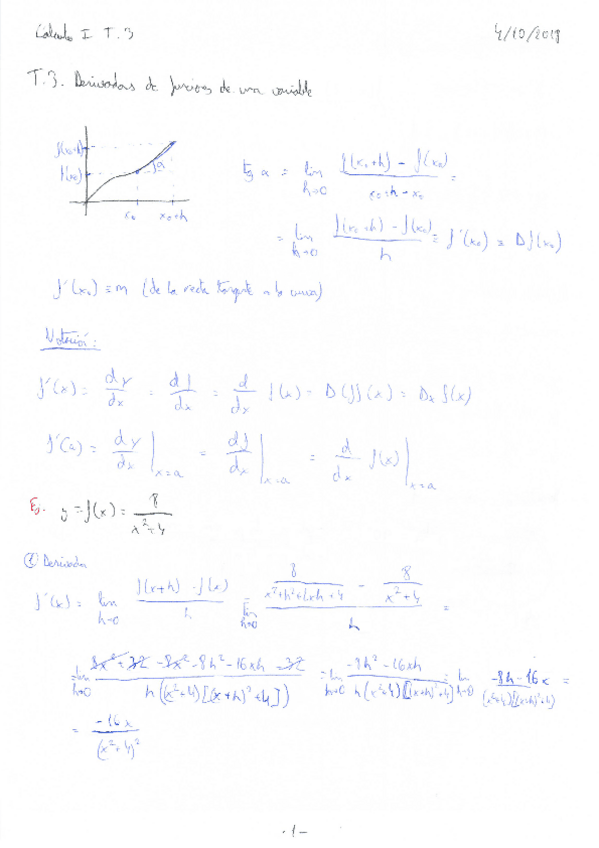 Cálculo I T.3 4/10/2018
T.3. Derivadas de funciones de una variable
f(x₀+h)
f(x₀)
α
x₀ x₀+h
tg α = lim h→0 (f(x₀+h) - f(x₀))/(x₀+h-x₀) =
= lim h→0 (f(x₀+h) - f(x₀))/h = f'(x₀) = Df(x₀)
f'(x₀) = m (de la recta tangente a la curva)
Notación:
f'(x) = dy/dx = df/dx = d/dx f(x) = D(f)(x) = Dₓ f(x)
f'(a) = dy/dx |x=a = df/dx |x=a = d/dx f(x) |x=a
Ej. y = f(x) = 8/(x²+4)
① Derivada
f'(x) = lim h→0 (f(x+h) - f(x))/h = lim h→0 (8/(x²+h²+2xh+4) - 8/(x²+4))/h =
= lim h→0 (8x²+32-8x²-8h²-16xh-32)/(h(x²+4)[(x+h)²+4]) = lim h→0 (-8h²-16xh)/(h(x²+4)[(x+h)²+4]) = lim h→0 (-8h-16x)/((x²+4)[(x+h)²+4]) =
= -16x/(x²+4)²
-1-